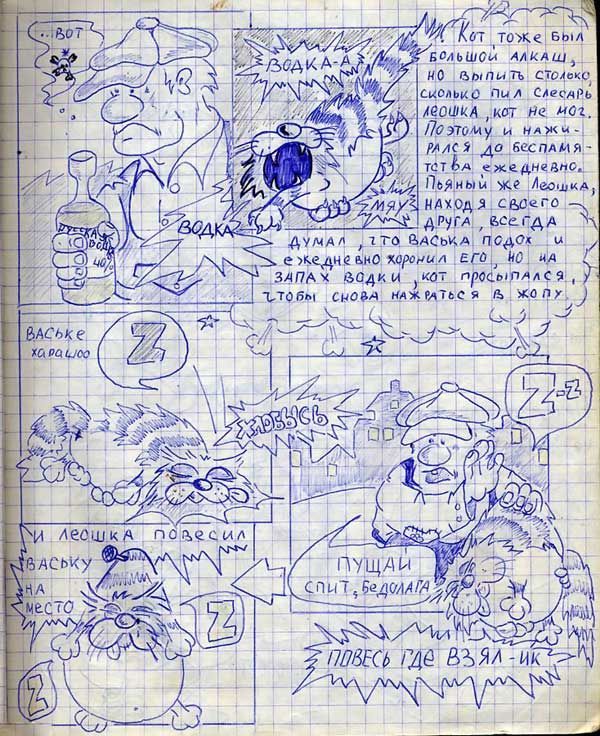 ...ВОТ
ВОДКА-А
Кот тоже был
большой алкаш,
но выпить столько,
сколько пил слесарь
леошка, кот не мог.
Поэтому и нажи-
рался до беспамя-
тства ежедневно.
Пьяный же Леошка,
находя своего
друга, всегда
думал, что Васька подох и
ежедневно хоронил его, но на
запах водки, кот просыпался,
чтобы снова нажраться в жопу.
МЯУ
ВОДКА
РУССКАЯ
ВОДКА
40%
ВАСЬКЕ
харашоо
Z
ХЛОБЫСЬ
Z-z
ПУЩАЙ
СПИТ, БЕДОЛАГА
ПОВЕСЬ ГДЕ ВЗЯЛ-ИК
И ЛЕОШКА ПОВЕСИЛ
ВАСЬКУ
НА
МЕСТО
Z
Z